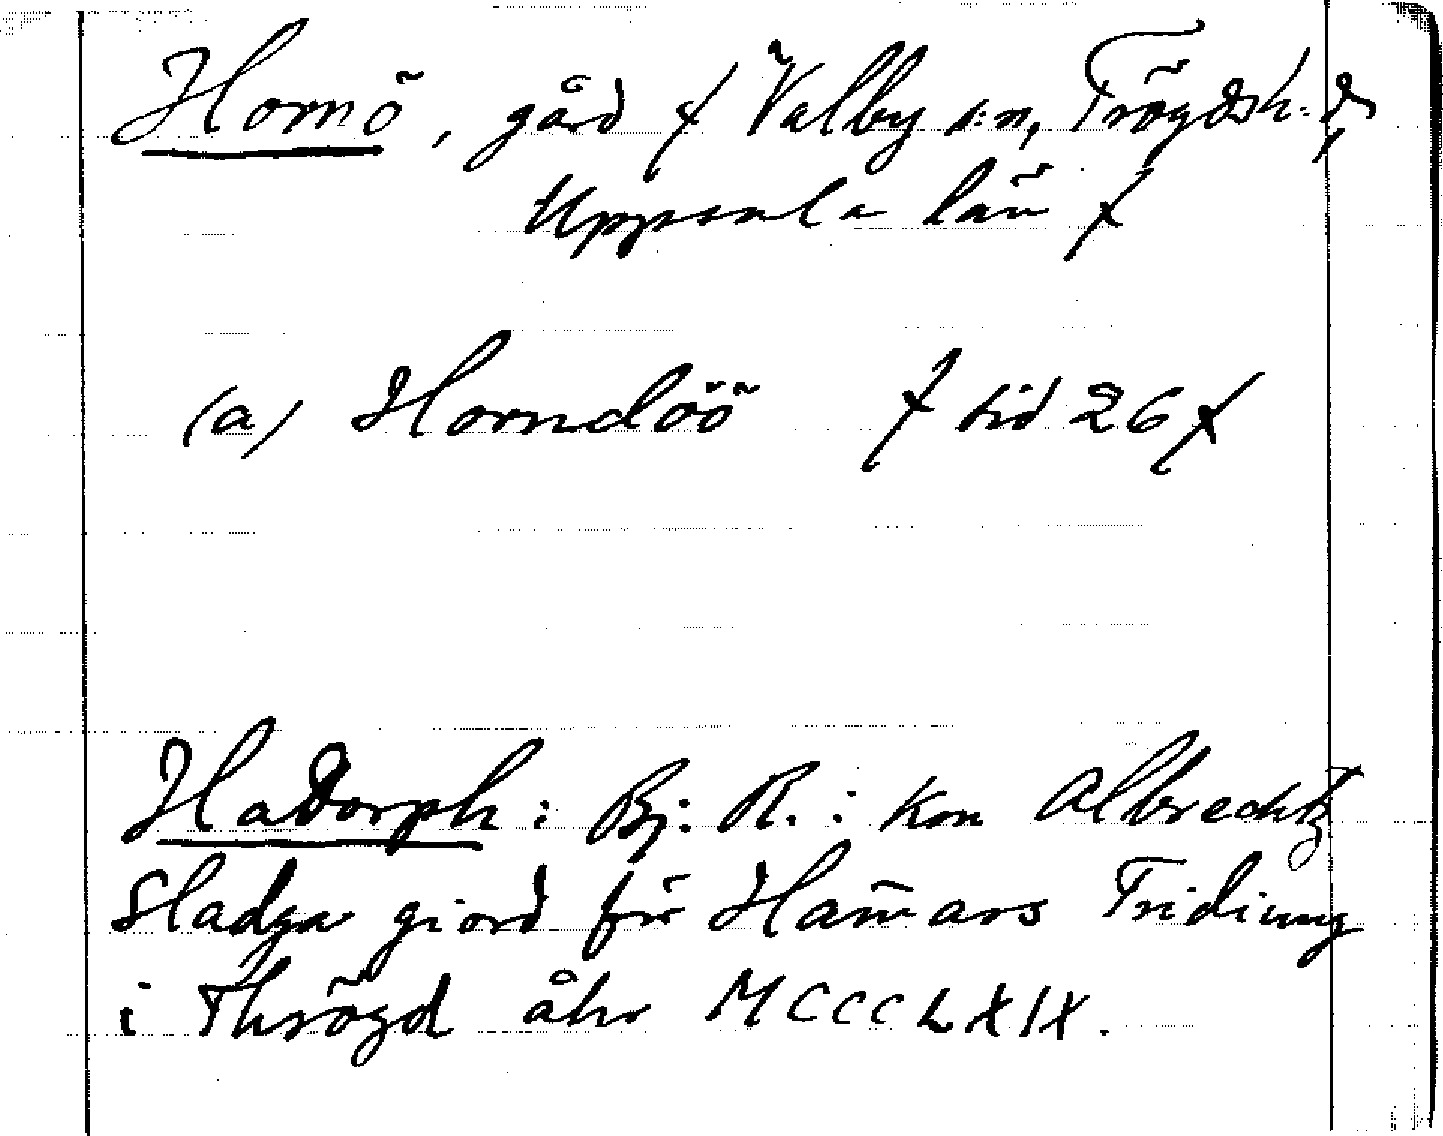 Hornö, gård ⟨ Valby s:n, Trögds h:d,
Uppsala län ⟩
(a) Horndöö ⟨ sid 26 ⟩
Hadorph: Bj. R.: Kon Albrechtz
Stadga giord för Ham̄ars Tridiung
i Thrögd åhr MCCCLXIX.